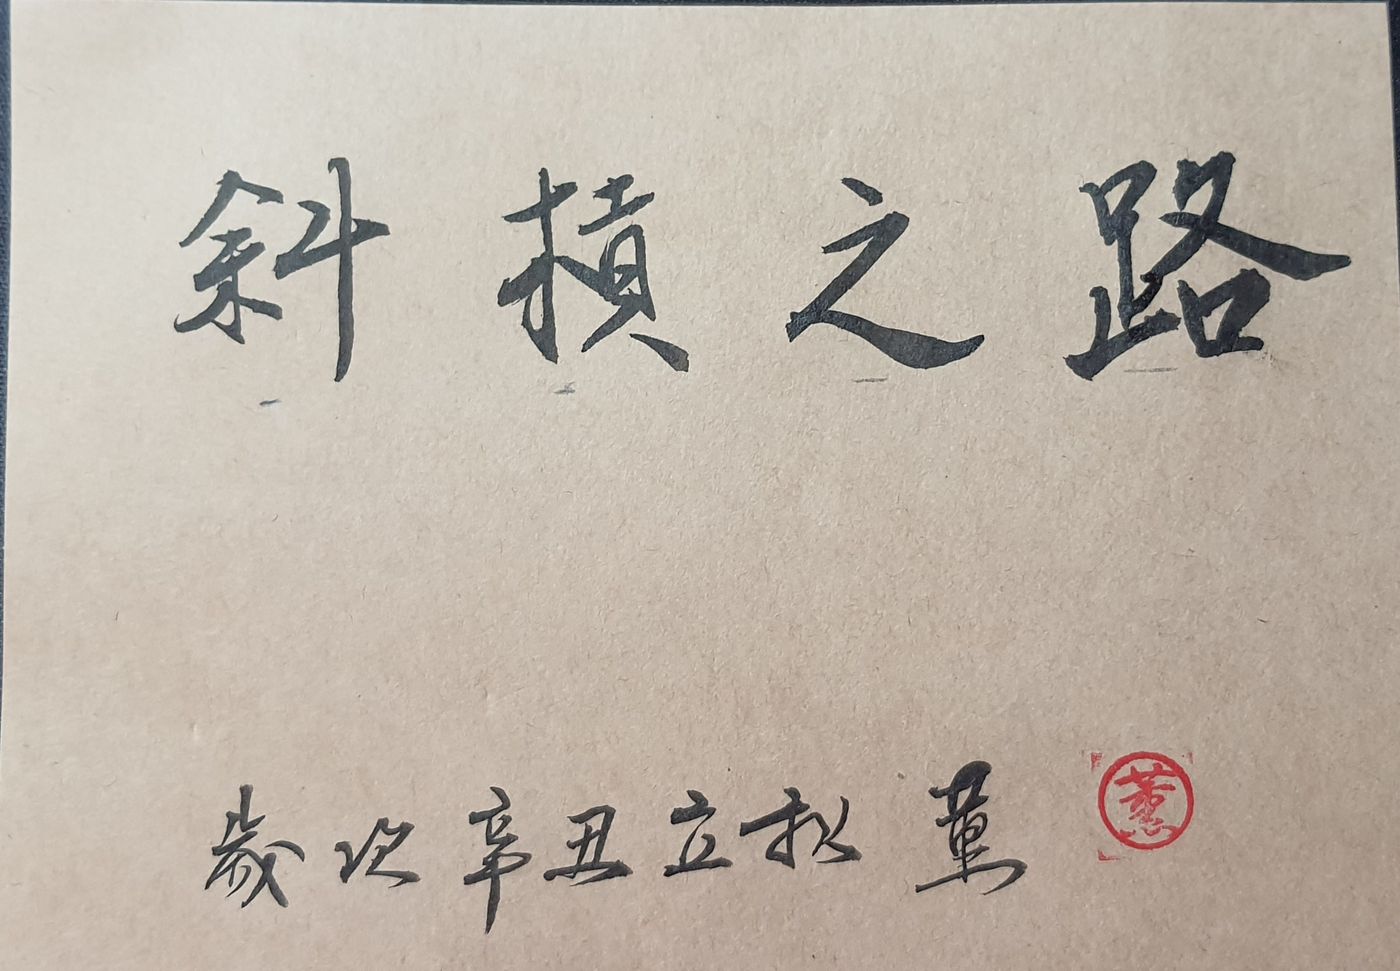 斜槓之路
歲次辛丑立秋 蕙
蕙